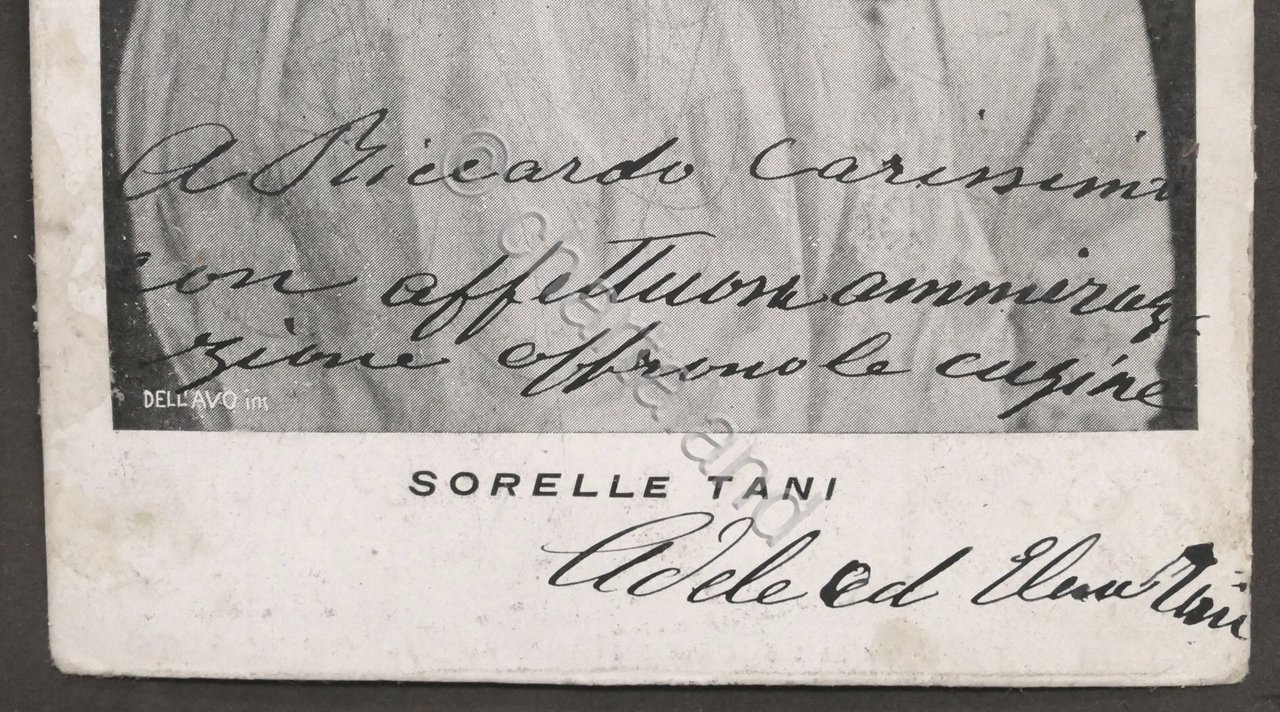 A Riccardo Carissimo
con affettuosa ammiraz
zione offrono le cugine
DELL'AVO inc
SORELLE TANI
Adele ed Elena Tani
© chartaland